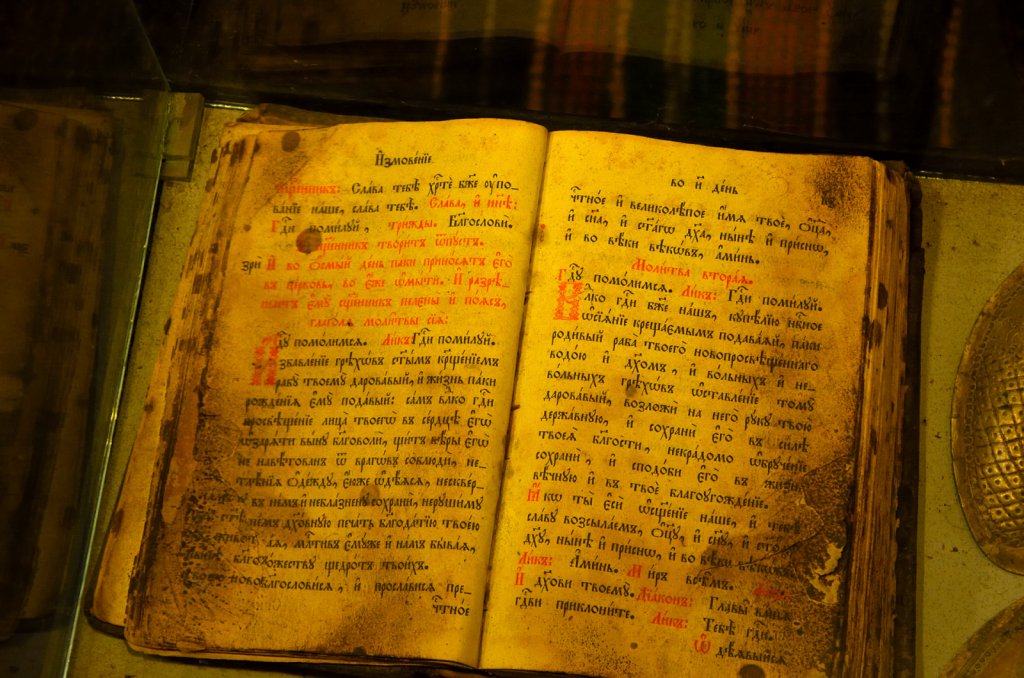 И҆змове́нїе
Сщ҃е́нникъ: Сла́ва тебѣ̀ хрⷭ҇тѐ бж҃е ᲂу҆по-
ва́нїе на́ше, сла́ва тебѣ̀. Сла́ва, и҆ ны́нѣ:
Гдⷭ҇и поми́луй, три́жды. Благословѝ.
Сщ҃е́нникъ твори́тъ ѿпꙋ́стъ.
зрѝ И҆ во ѻ҆смы́й де́нь па́ки прино́сѧтъ є҆го̀
въ це́рковь, во є҆́же ѡ҆мы́ти. И҆ разрѣ-
ша́етъ є҆мꙋ̀ сщ҃е́нникъ пелены̀ и҆ по́ѧсъ,
глаго́лѧ моли́твы сїѧ̑:
Гдⷭ҇ꙋ помо́лимсѧ. Ли́къ Гдⷭ҇и поми́лꙋй.
И҆збавле́нїе грѣхѡ́въ ст҃ы́мъ крⷭ҇ще́нїемъ
рабꙋ̀ твоемꙋ̀ дарова́вый, и҆ жи́знь па́ки
рожде́нїѧ є҆мꙋ̀ пода́вый: са́мъ влⷣко гдⷭ҇и
просвѣще́нїе лица̀ твоегѡ̀ въ се́рдцѣ є҆гѡ̀
ѡ҆зарѧ́ти вы́нꙋ благоволѝ, щи́тъ вѣ́ры є҆гѡ̀
не навѣ́тованъ ѿ врагѡ́въ соблюдѝ, не-
тлѣ́нїѧ ѻ҆де́ждꙋ, є҆ю́же ѡ҆дѣ́ѧсѧ, несквер-
нꙋ въ не́мъ и҆ неблазненнꙋ сохранѝ, нерꙋши́мꙋ
въ не́мъ дх҃о́внꙋю печа́ть блгⷣа́тїю твое́ю
ѧ, млⷭ҇тивъ є҆мꙋ́же и҆ на́мъ быва́ѧ,
благоꙋтро́бїю щедро́тъ твои́хъ.
новоблагослови́сѧ, и҆ просла́висѧ пре-
чⷭ҇тно́е
во и҃ де́нь
чⷭ҇тно́е и҆ великолѣ́пое и҆́мѧ твоѐ, ѻ҆ц҃а̀,
и҆ сн҃а, и҆ ст҃а́гѡ дх҃а, ны́нѣ и҆ при́снѡ,
и҆ во вѣ́ки вѣкѡ́въ, а҆ми́нь.
Моли́тва втора́ѧ.
Гдⷭ҇ꙋ помо́лимсѧ. Ли́къ: Гдⷭ҇и поми́лꙋй.
Влⷣко гдⷭ҇и бж҃е на́шъ, кꙋпѣ́лїю нбⷭ҇ное
ѡ҆сїѧ́нїе креща́ємымъ подава́ѧй, па́ки
роди́вый раба̀ твоего̀ новопросвѣще́ннаго
водо́ю и҆ дх҃омъ, и҆ во́льныхъ и҆ не-
во́льныхъ грѣхѡ́въ ѡ҆ставле́нїе томꙋ̀
дарова́вый, возложѝ на него̀ рꙋ́кꙋ твою̀
держа́внꙋю, и҆ сохранѝ є҆го̀ въ си́лѣ
твоеѧ̀ бла́гости, некра́домо ѡ҆брꙋче́нїе
сохранѝ, и҆ сподо́би є҆го̀ въ жи́знь
вѣ́чнꙋю и҆ въ твоѐ благоꙋгожде́нїе.
Ꙗ҆́кѡ ты̀ є҆сѝ ѡ҆сщ҃е́нїе на́ше, и҆ тебѣ̀
сла́вꙋ возсыла́емъ, ѻ҆ц҃ꙋ̀, и҆ сн҃ꙋ, и҆ ст҃о́мꙋ
дх҃ꙋ, ны́нѣ и҆ при́снѡ, и҆ во вѣ́ки вѣкѡ́въ.
Ли́къ: А҆ми́нь. Ми́ръ всѣ̑мъ.
И҆ дх҃ови твоемꙋ̀. Дїа́конъ: Главы̑ на́шѧ
гдⷭ҇еви приклони́те. Ли́къ: Тебѣ̀ гдⷭ҇и.
Ѡ҆дѣ́ѧвыйсѧ